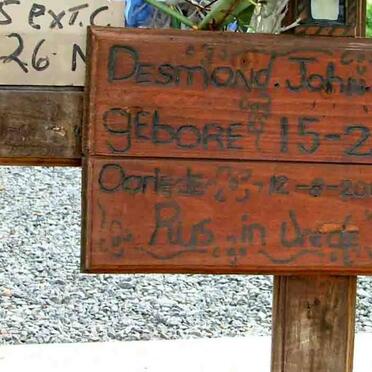 S EXT.C
26 N
DESMOND. JOHN
GEBORE 15-2
Oorlede 12-8-200
Rus in Vrede